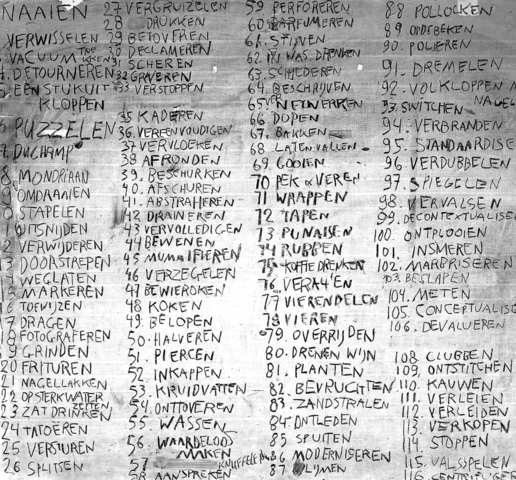 NAAIEN
VERWISSELEN
VACUUM TREKKEN
4. DETOURNEREN
5. EEN STUK UIT
KLOPPEN
6 PUZZELEN
7 DUCHAMP
8 MONDRIAAN
9 OMDRAAIEN
STAPELEN
UITSNIJDEN
2 VERWIJDEREN
13 DOORSTREPEN
WEGLATEN
15 MARKEREN
16 TOEWIJZEN
17 DRAGEN
18 FOTOGRAFEREN
19 GRINDEN
20 FRITUREN
21 NAGELLAKKEN
22 OP STERK WATER ZETTEN
23 ZAT DRINKEN
24 TATOEËREN
25 VERSTUREN
26 SPLITSEN
27 VERGRUIZELEN
28 DRUKKEN
29 BETOVEREN
30 DECLAMEREN
31 SCHEREN
32 GRAVEREN
33 VERSTOPPEN
35 KADEREN
36. VEREENVOUDIGEN
37 VERVLOEKEN
38 AFRONDEN
39. BESCHURKEN
40. AFSCHUREN
41. ABSTRAHEREN
42 DRAINEREN
43 VERVOLLEDIGEN
44 BEWENEN
45 MUMMIFIEREN
46 VERZEGELEN
47 BEWIEROKEN
48 KOKEN
49. BELOPEN
50. HALVEREN
51. PIERCEN
52. INKAPPEN
53. KRUIDVATTEN
54. ONTTOVEREN
55. WASSEN
56. WAARDELOOS
MAKEN
57 KNUFFELEN
58 AANSPREKEN
59 PERFOREREN
60 PARFUMEREN
61. STIJVEN
62. IN WAS DRENKEN
63. SCHILDEREN
64. BESCHRIJVEN
66 DOPEN
67. BAKKEN
68 LATEN VALLEN
69. GOOIEN
70 PEK & VEREN
71 WRAPPEN
72 TAPEN
73 PUNAISEN
74 RUBBEN
75. KOFFIE DRENKEN
76.
77 VIERENDELEN
78 VIEREN
79. OVERRIJDEN
80. DRENGEN WIJN
81. PLANTEN
82. BEVRUCHTEN
83. ZANDSTRALEN
84. ONTLEDEN
85 SPUITEN
86 MODERNISEREN
87 LIJMEN
88 POLLOCKEN
89
90 POLIEREN
91. DREMELEN
92. VOLKLOPPEN M
NAGEL
93 SWITCHEN
94. VERBRANDEN
95. STANDAARDISE
96 VERDUBBELEN
97. SPIEGELEN
98. VERVALSEN
99. DECONTEXTUALISE
100. ONTPLOOIEN
101. INSMEREN
102. MARBRISEREN
103. BESLAPEN
104. METEN
105. CONCEPTUALISE
106. DEVALUEREN
108 CLUBBEN
109. ONTSTICHTEN
110. KAUWEN
111. VERLEIEN
112. VERLEIDEN
113. VERKOPEN
114. STOPPEN
115. VALSSPELEN
116